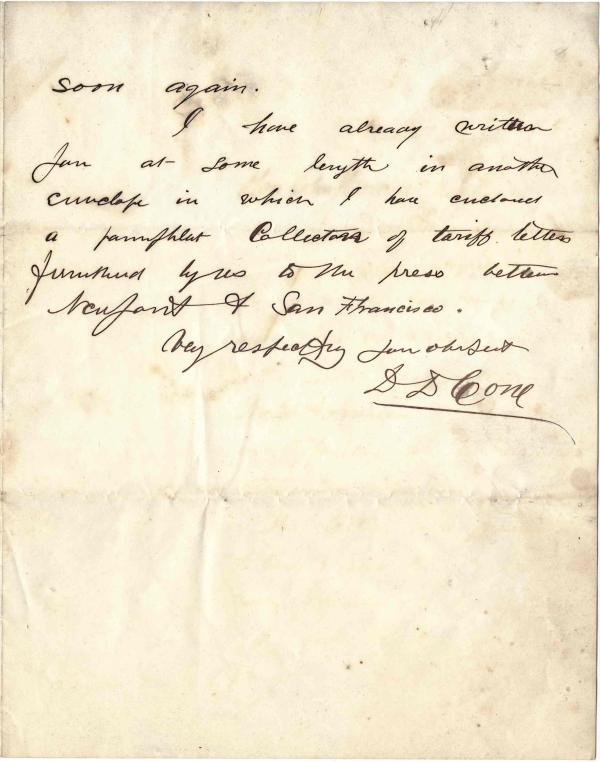 soon again.
I have already written
you at some length in another
envelope in which I have enclosed
a pamphlet Collection of tariff letters
furnished by us to the press between
New York & San Francisco.
Very respectfy your obt Sevt
D D Cone